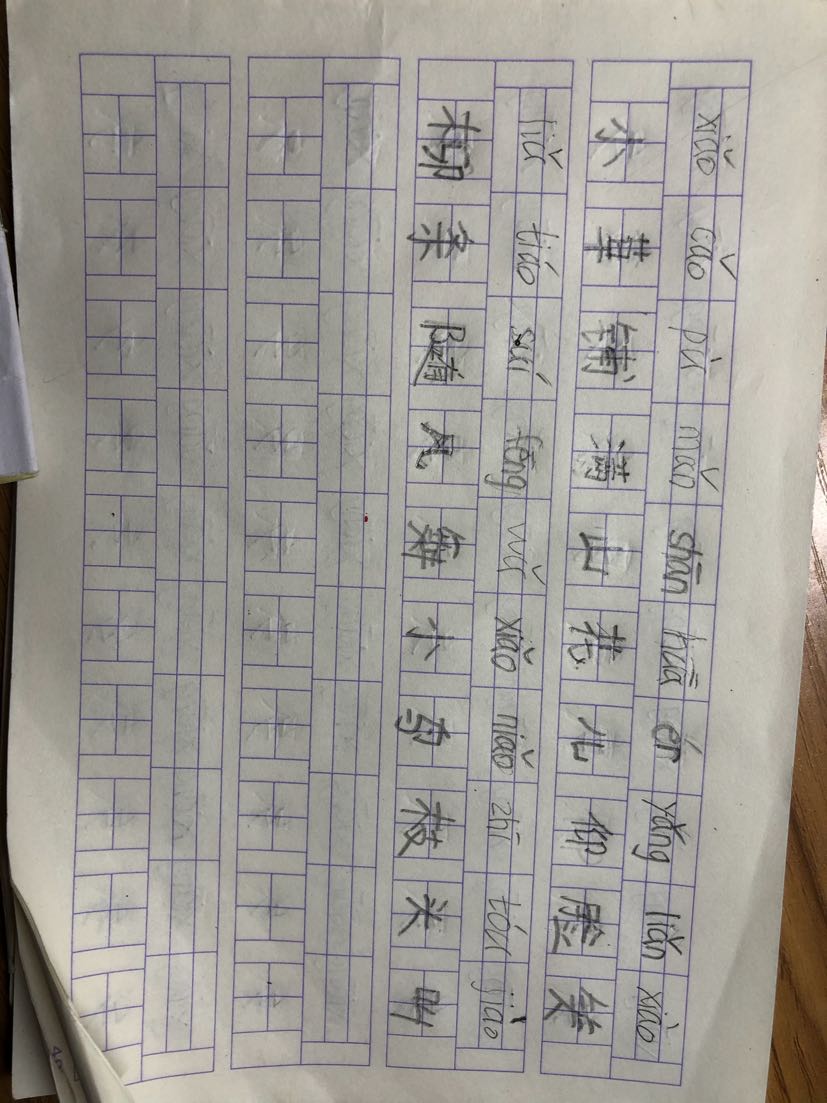 xiǎo cǎo pù mǎn shān huā ér yǎng liǎn xiào
小草铺满山花儿仰脸笑
liǔ tiáo suí fēng wǔ xiǎo niǎo zhī tóu jiào
柳条随风舞小鸟枝头叫